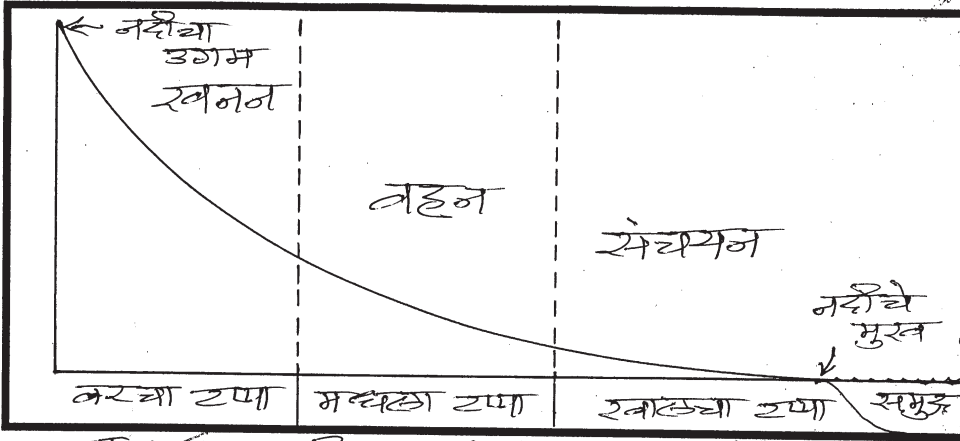 नदीचा
उगम
खनन
वहन
संचयन
नदीचे
मुख
वरचा टप्पा
मधला टप्पा
खालचा टप्पा
समुद्र